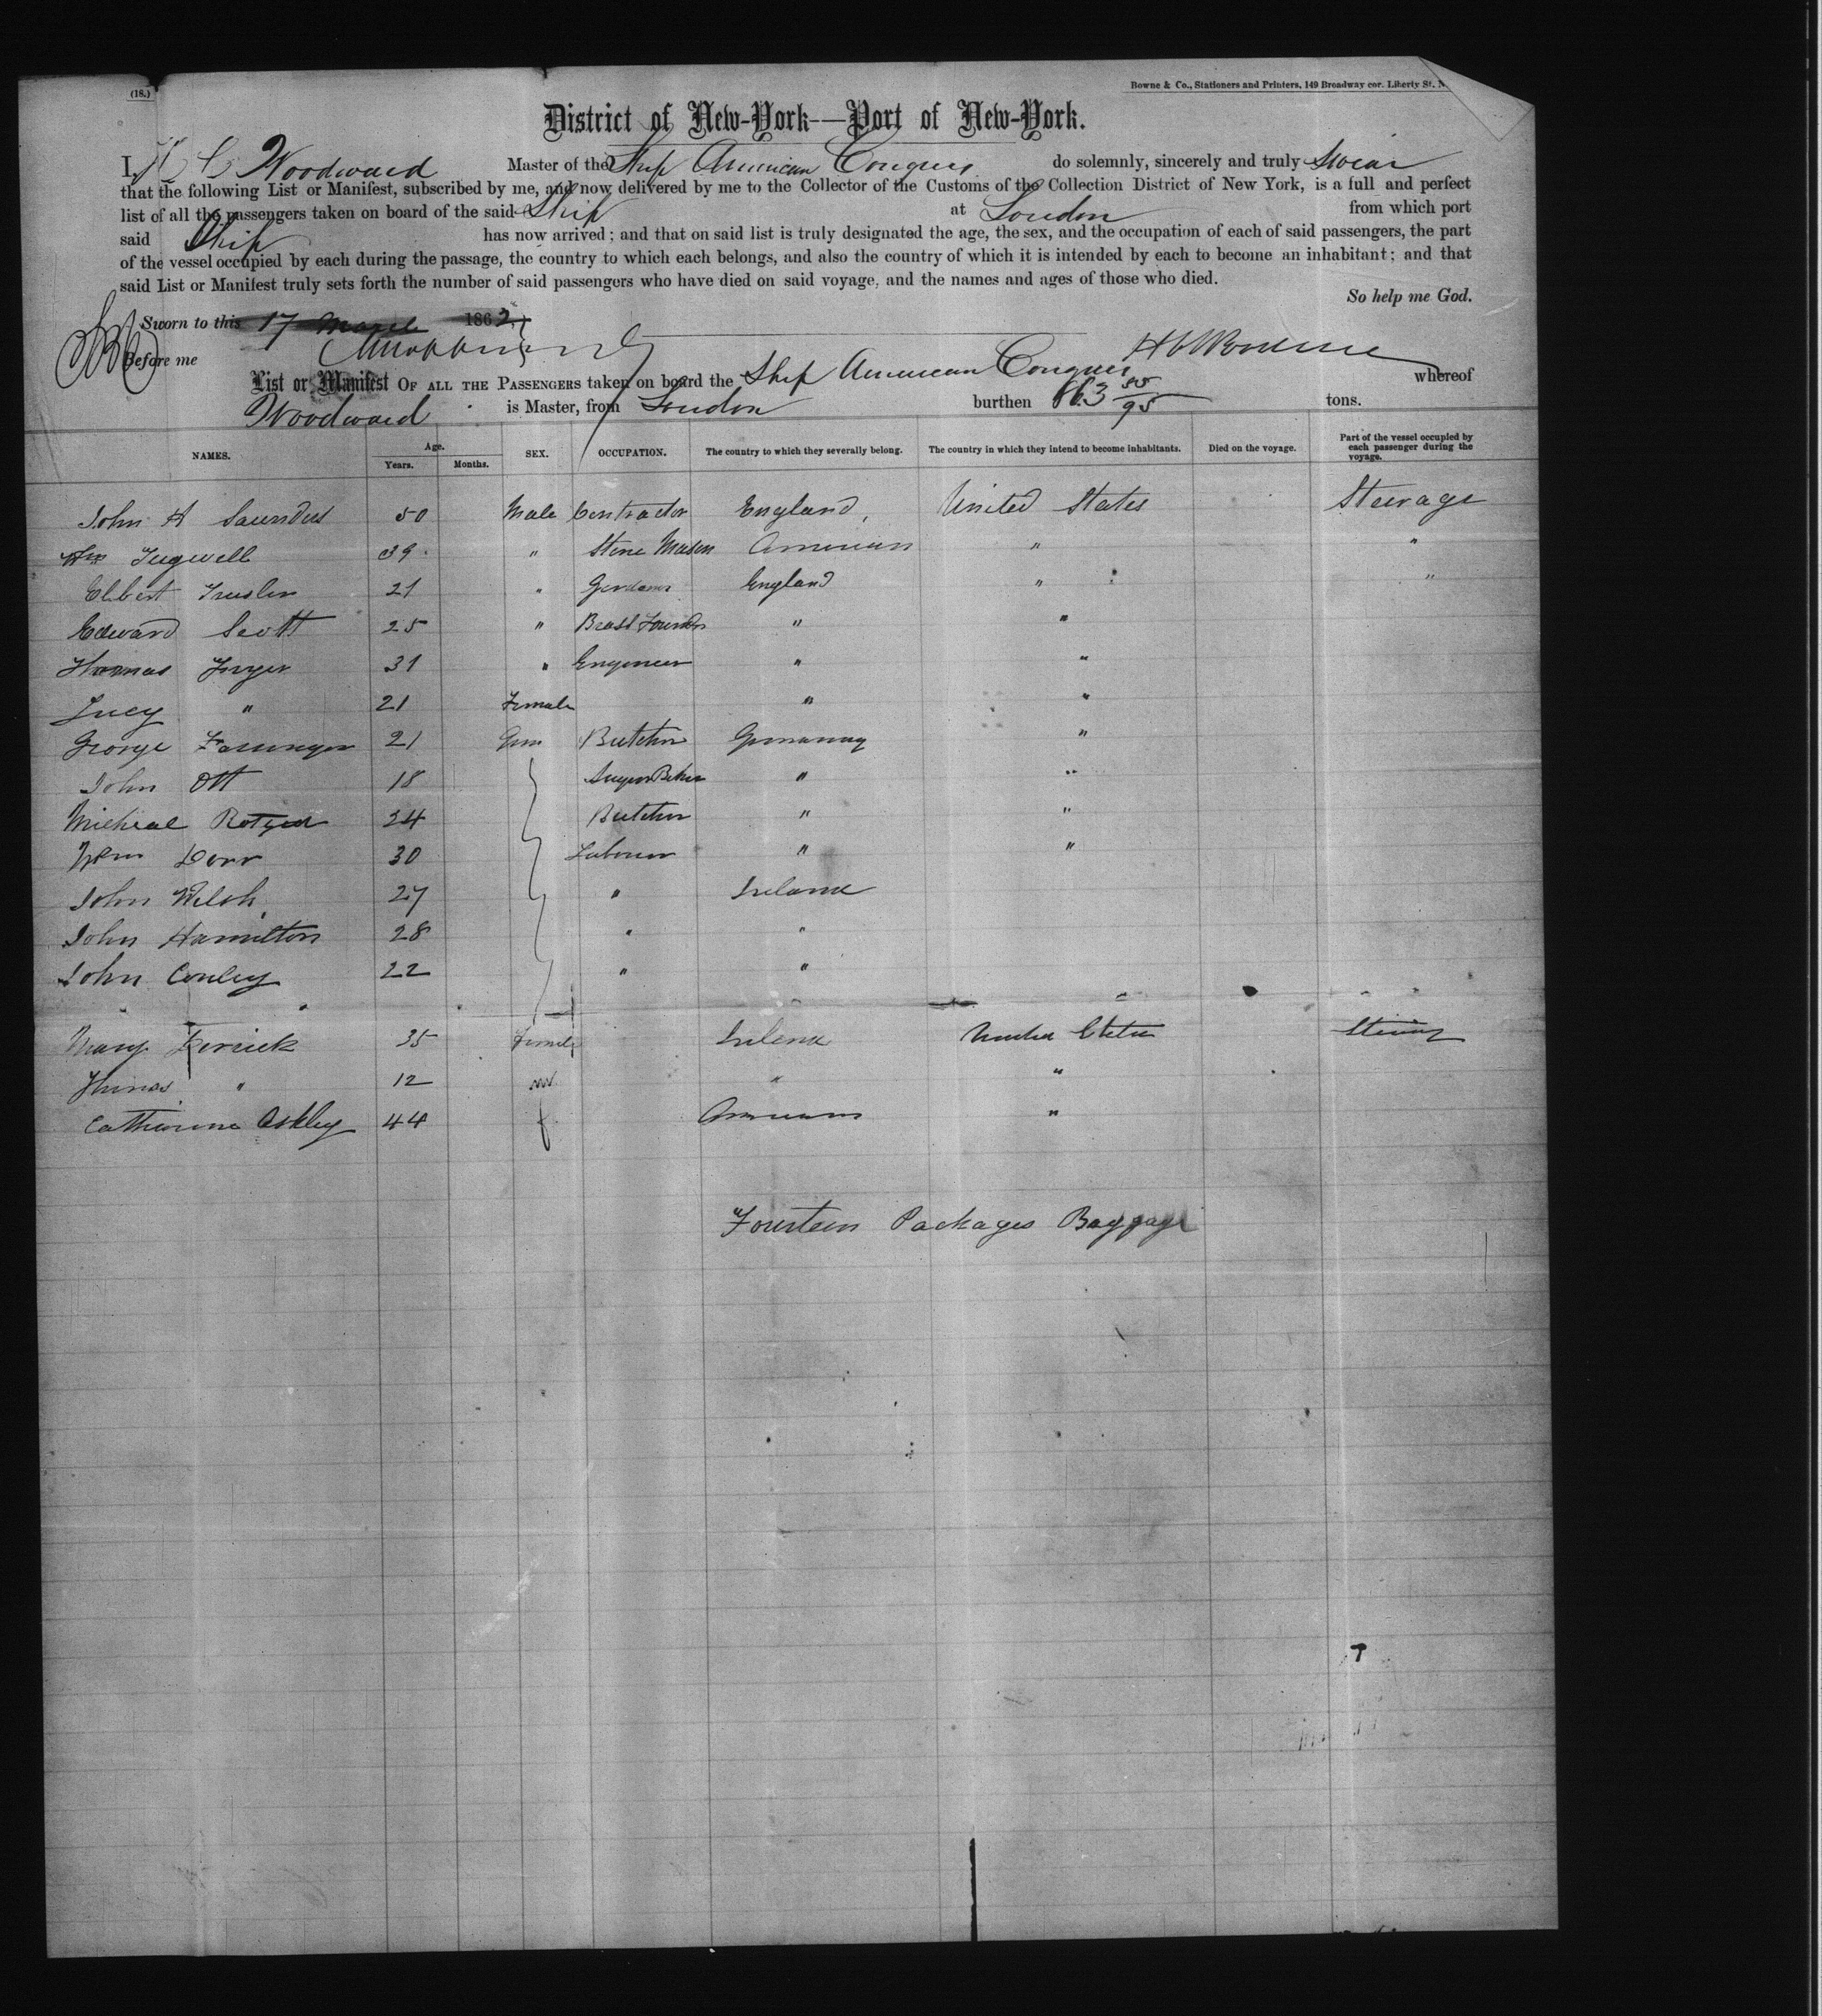 (18.)
Bowne & Co., Stationers and Printers, 149 Broadway cor. Liberty St. N
District of New-York—Port of New-York.
I, H C Woodward Master of the Ship American Congress do solemnly, sincerely and truly Swear
that the following List or Manifest, subscribed by me, and now delivered by me to the Collector of the Customs of the Collection District of New York, is a full and perfect
list of all the passengers taken on board of the said Ship at London from which port
said Ship has now arrived; and that on said list is truly designated the age, the sex, and the occupation of each of said passengers, the part
of the vessel occupied by each during the passage, the country to which each belongs, and also the country of which it is intended by each to become an inhabitant; and that
said List or Manifest truly sets forth the number of said passengers who have died on said voyage, and the names and ages of those who died.
So help me God.
Sworn to this 17 March 1862
Before me
List or Manifest OF ALL THE PASSENGERS taken on board the Ship American Congress whereof
Woodward is Master, from London burthen 863 tons.
NAMES. Age. Years. Months. SEX. OCCUPATION. The country to which they severally belong. The country in which they intend to become inhabitants. Died on the voyage. Part of the vessel occupied by each passenger during the voyage.
John H Saunders 50 Male Contractor England, United States Steerage
Wm Tugwell 39 " Stone Mason American " "
Elbert Trusler 21 " England " "
Edward Scott 25 " Brass Founder " "
Thomas Fryer 31 " Engineer " "
Lucy " 21 Female " "
George 21 Butcher Germany "
John Ott 18 Sugar Baker " "
Micheal 24 Butcher " "
Wm Dorr 30 Labourer " "
John Welsh 27 " Ireland
John Hamilton 28 " "
John Conley 22 " "
Mary Derrick 35 Female Ireland United States Steerage
Thomas " 12 m " "
Catherine Oakley 44 f American "
Fourteen Packages Baggage